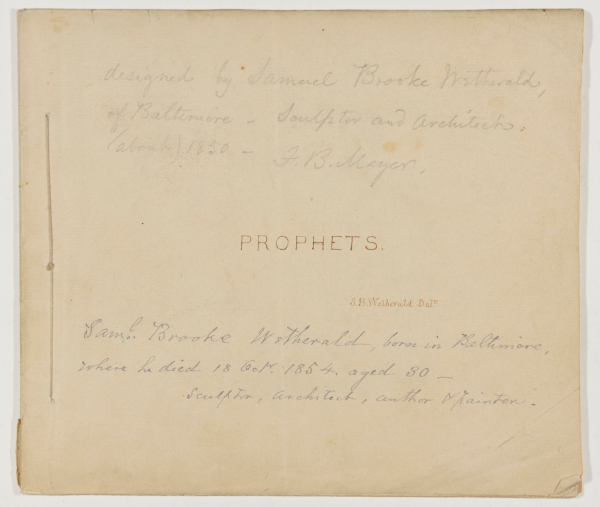 designed by Samuel Brooke Wetherald,
of Baltimore - Sculptor and Architect.
(about) 1850 - F. B. Mayer.
PROPHETS.
S. B. Wetherald Delt.
Saml. Brooke Wetherald, born in Baltimore,
where he died 18 Octr. 1854. aged 30 -
Sculptor, Architect, author & Painter.